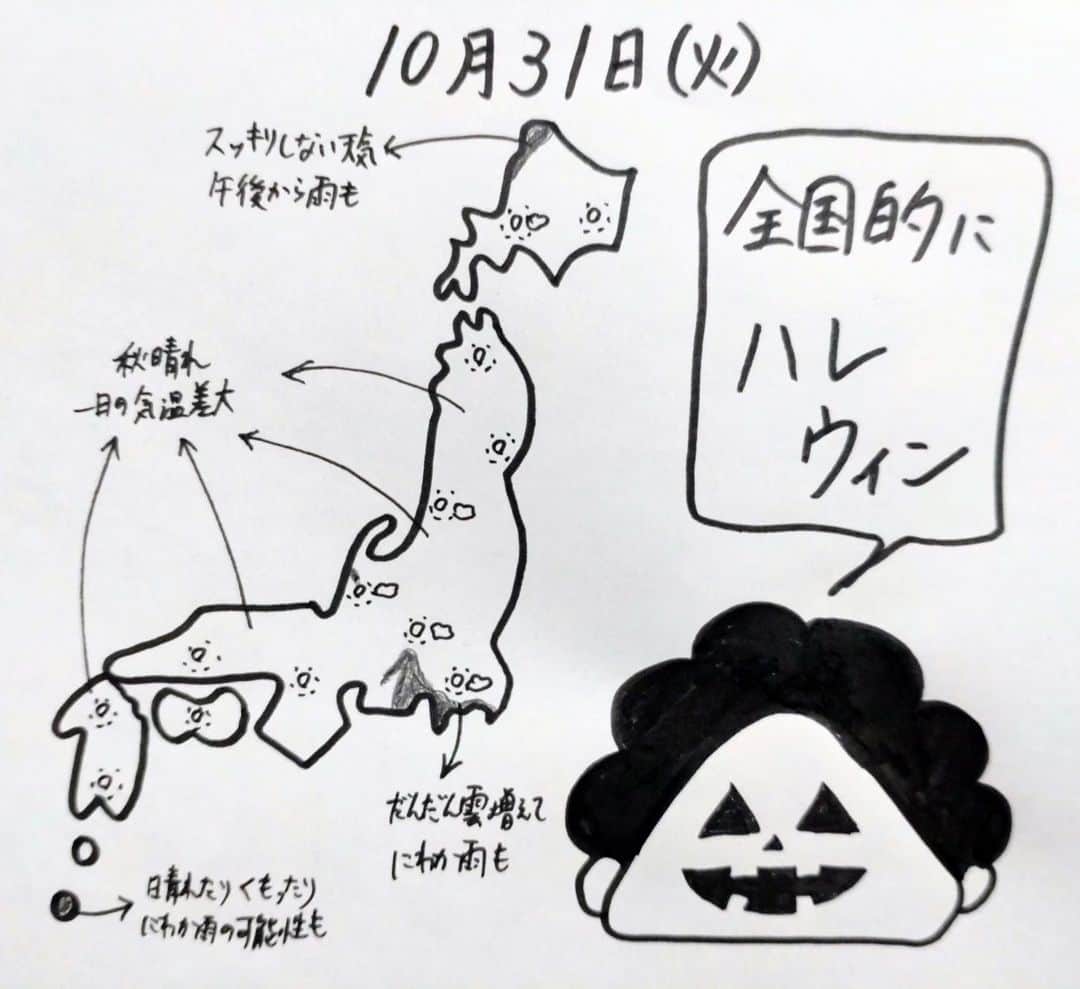 10月31日(火)
スッキリしない天気
午後から雨も
全国的に
ハレ
ウィン
秋晴れ
一日の気温差大
だんだん雲増えて
にわか雨も
晴れたりくもったり
にわか雨の可能性も